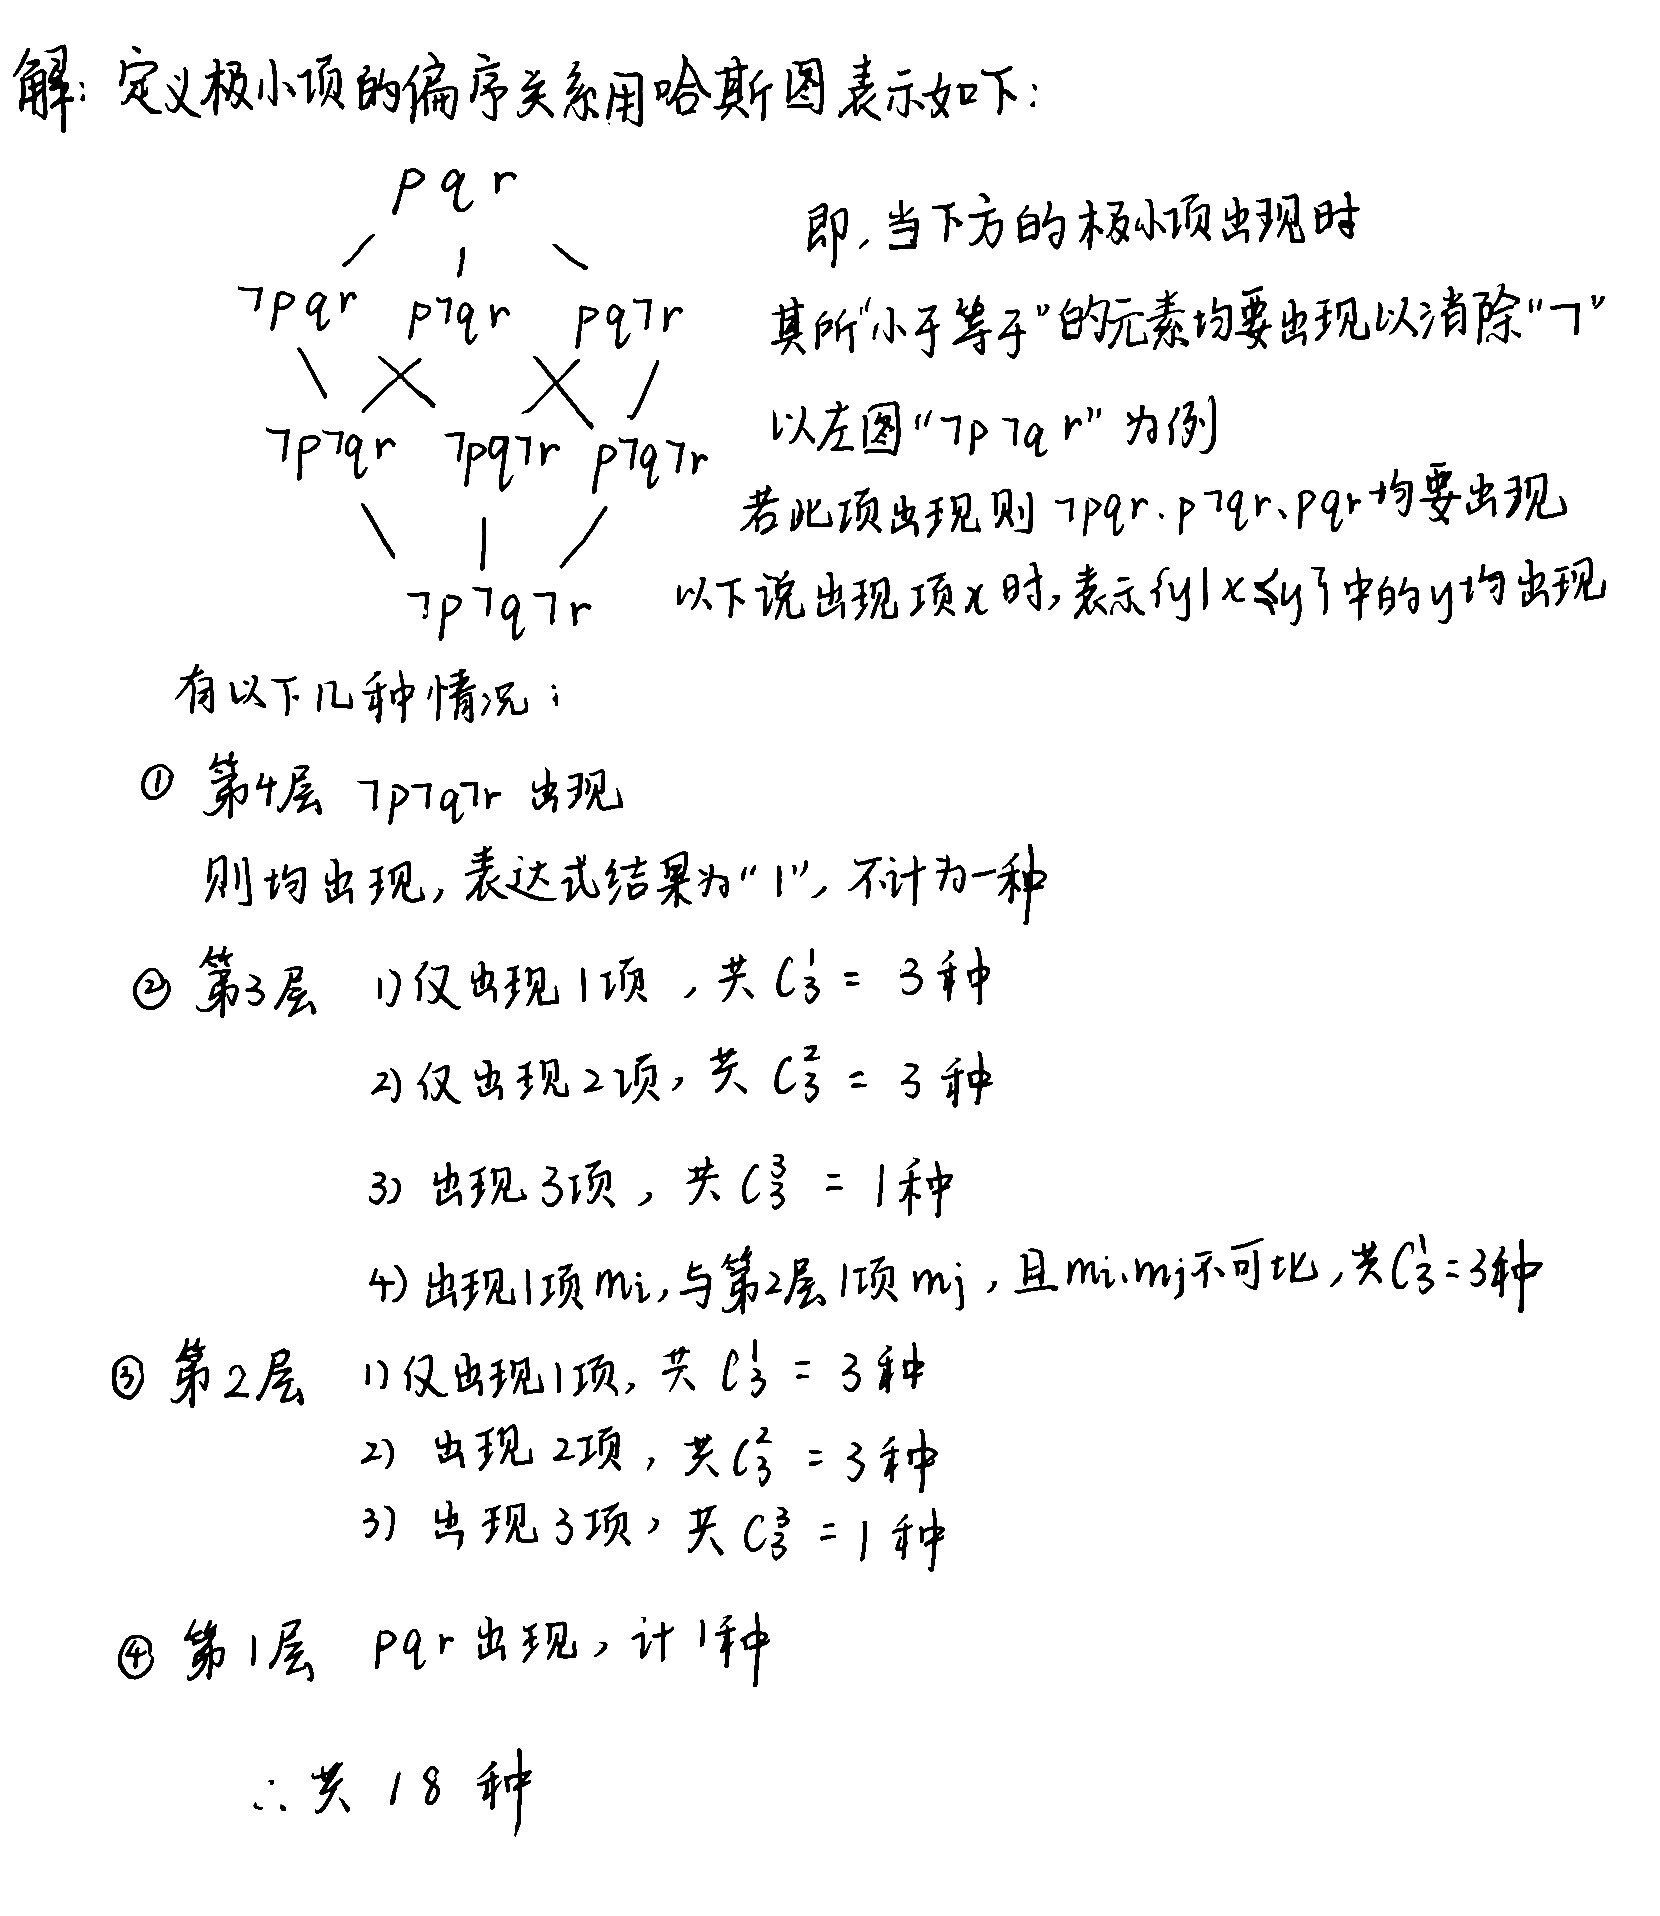 解：定义极小项的偏序关系用哈斯图表示如下：
p q r
即，当下方的极小项出现时
¬pqr p¬qr pq¬r
其所“小于等于”的元素均要出现以消除“¬”
以左图“¬p¬qr”为例
¬p¬qr ¬pq¬r p¬q¬r
若此项出现则 ¬pqr、p¬qr、pqr均要出现
¬p¬q¬r
以下说出现项x时，表示{y|x≤y}中的y均出现
有以下几种情况；
① 第4层 ¬p¬q¬r 出现
则均出现，表达式结果为“1”，不计为一种
② 第3层 1)仅出现1项，共 C₃¹ = 3种
2)仅出现2项，共 C₃² = 3种
3) 出现3项，共 C₃³ = 1种
4)出现1项mi，与第2层1项mj，且mi、mj不可比，共C₃¹=3种
③ 第2层 1)仅出现1项，共 C₃¹ = 3种
2) 出现2项，共C₃² = 3种
3) 出现3项，共 C₃³ = 1种
④ 第1层 pqr出现，计1种
∴共 18 种